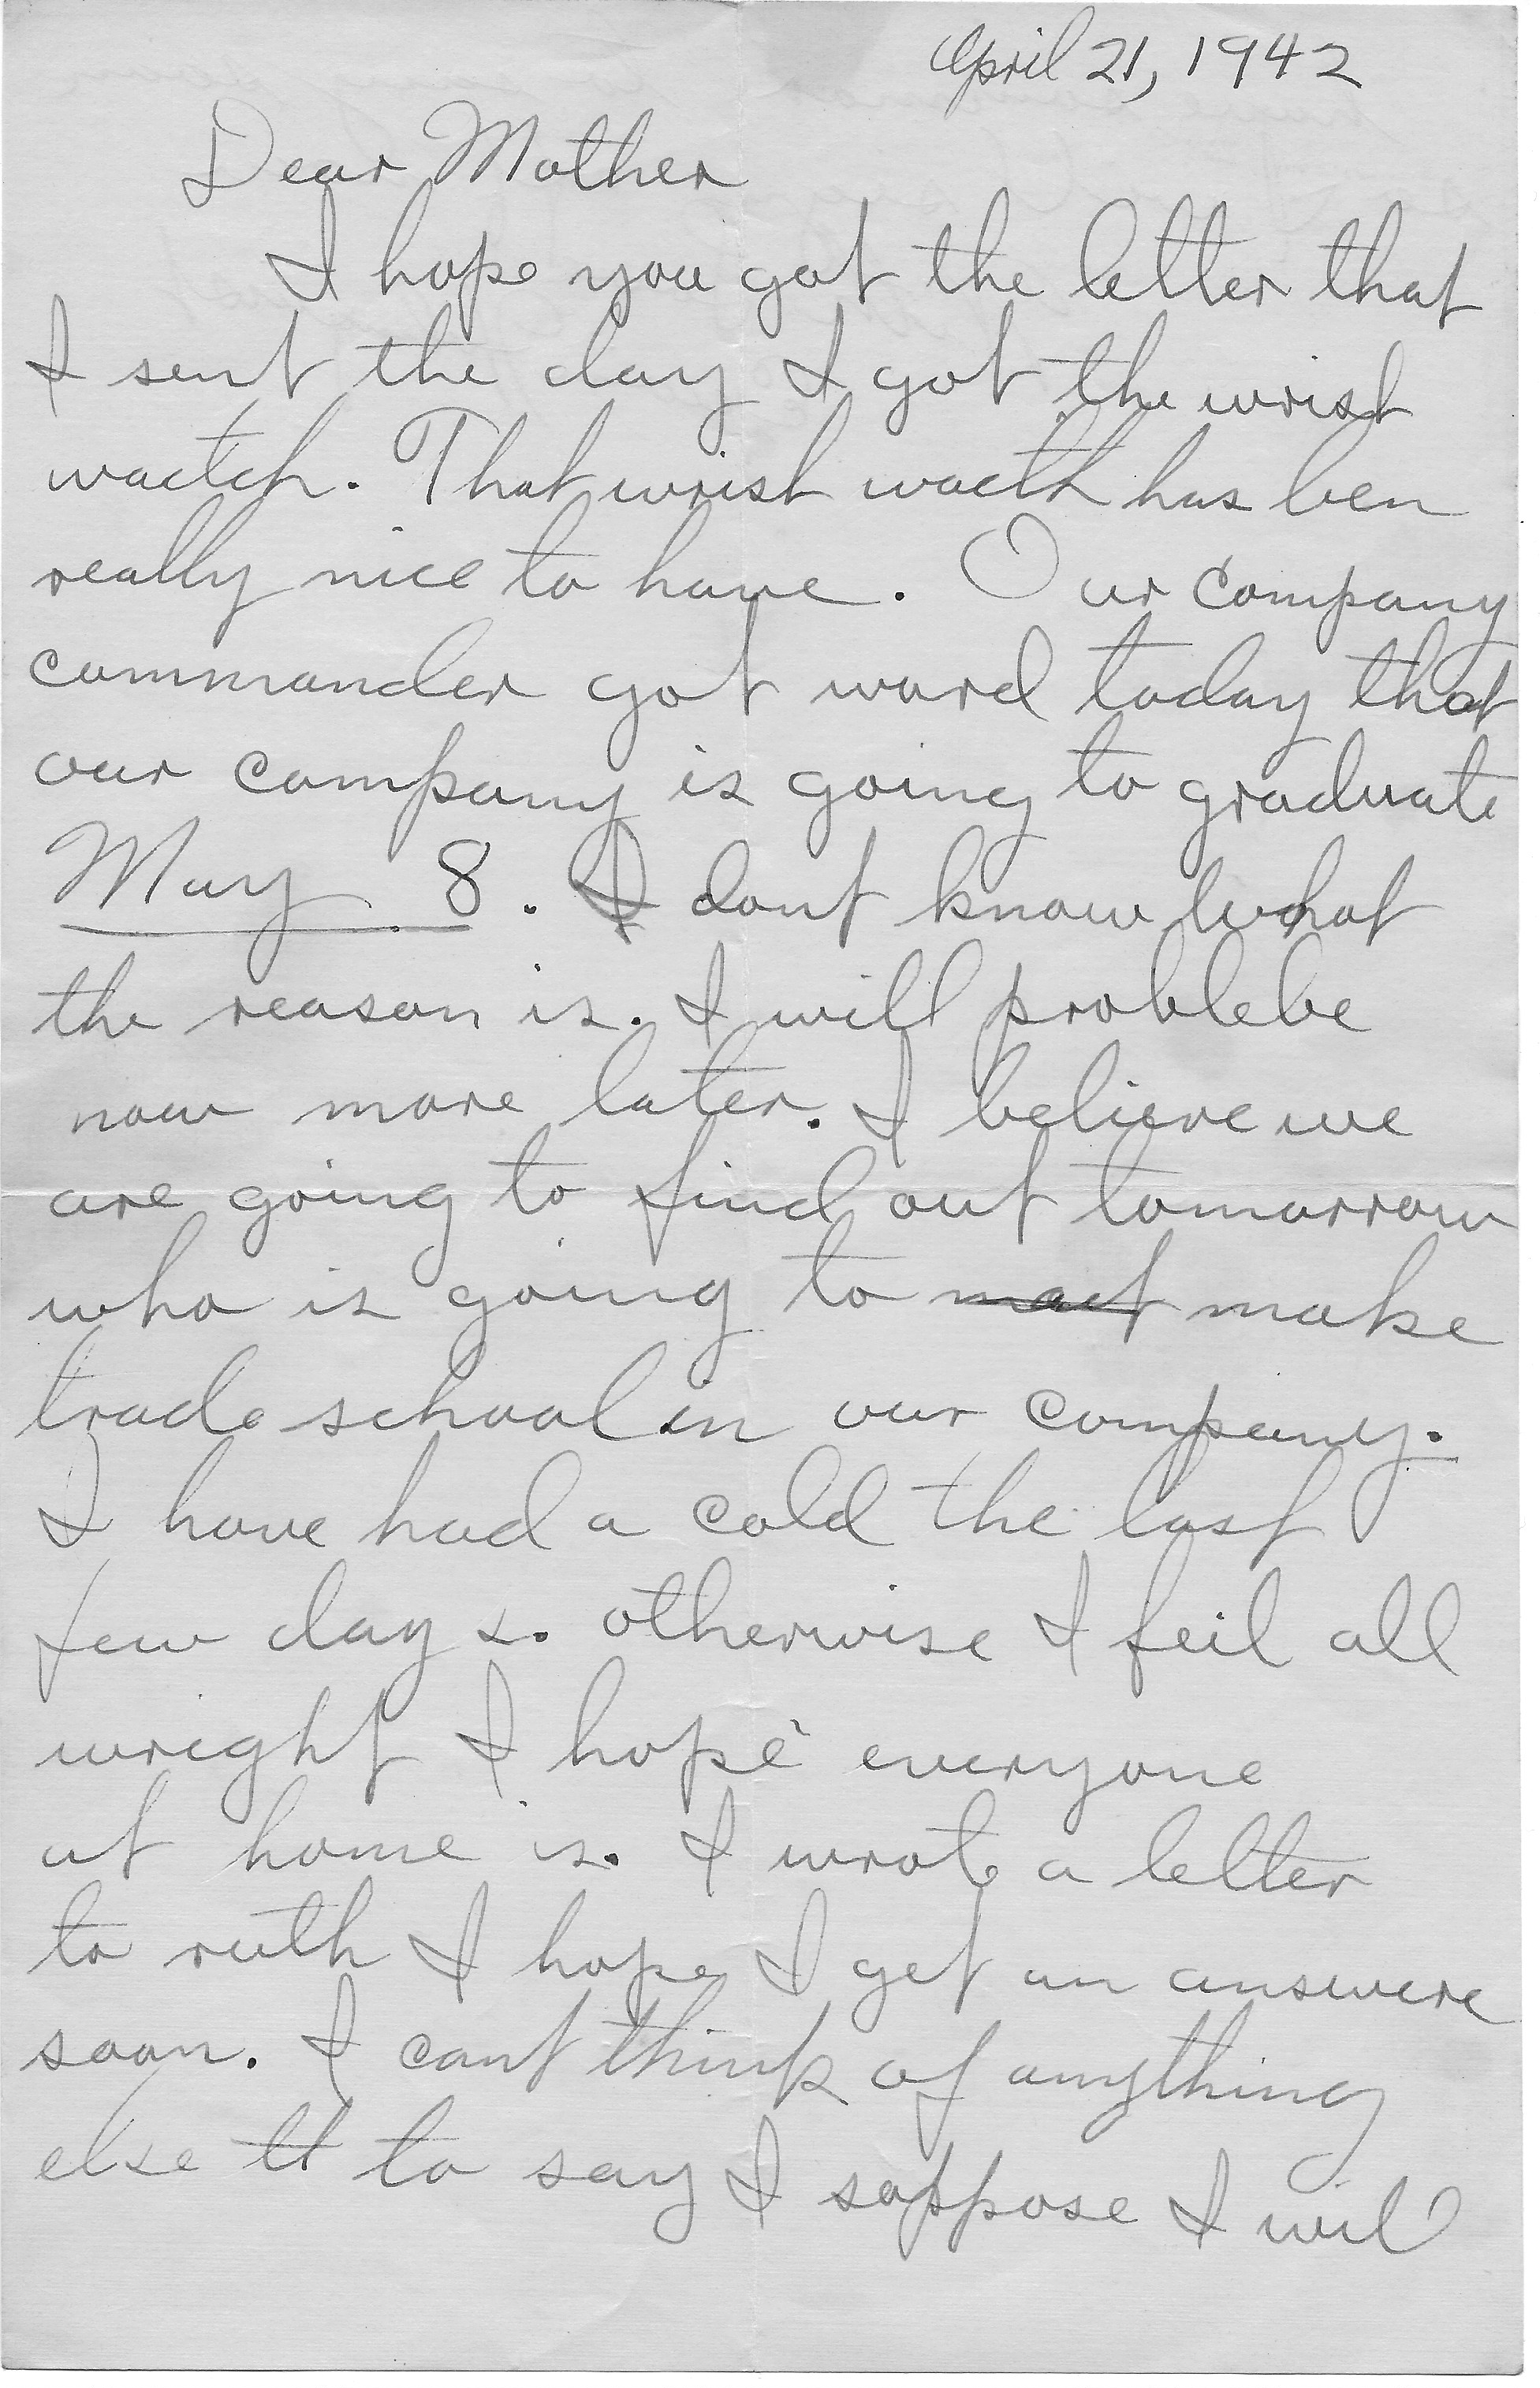 April 21, 1942
Dear Mother
I hope you got the letter that
I sent the day I got the wrist
wactch. That wrist wacth has ben
really nice to have. Our company
commander got word today that
our company is going to graduate
May 8. I dont know what
the reason is. I will problebe
now more later. I believe we
are going to find out tomorrow
who is going to mact make
trade school in our company.
I have had a cold the last
few days. otherwise I feil all
wright I hope everyone
at home is. I wrote a letter
to ruth I hope I get an answere
soon. I cant think of anything
else tt to say I soppose I wil